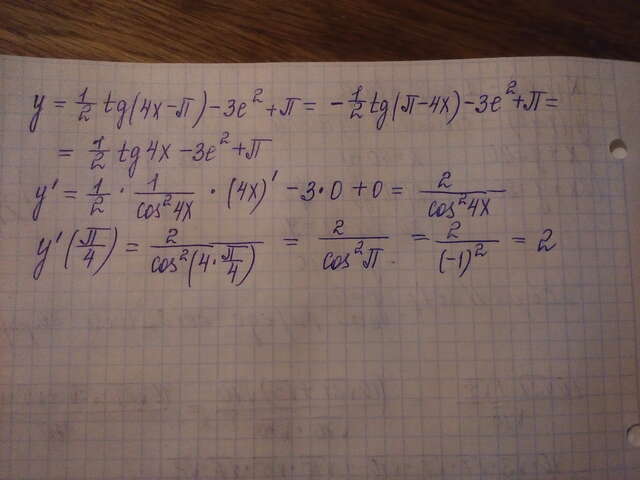 y = 1/2 tg(4x-π) - 3e² + π = -1/2 tg(π-4x) - 3e² + π =
= 1/2 tg 4x - 3e² + π
y' = 1/2 · 1/cos²4x · (4x)' - 3·0 + 0 = 2/cos²4x
y'(π/4) = 2/cos²(4·π/4) = 2/cos²π = 2/(-1)² = 2